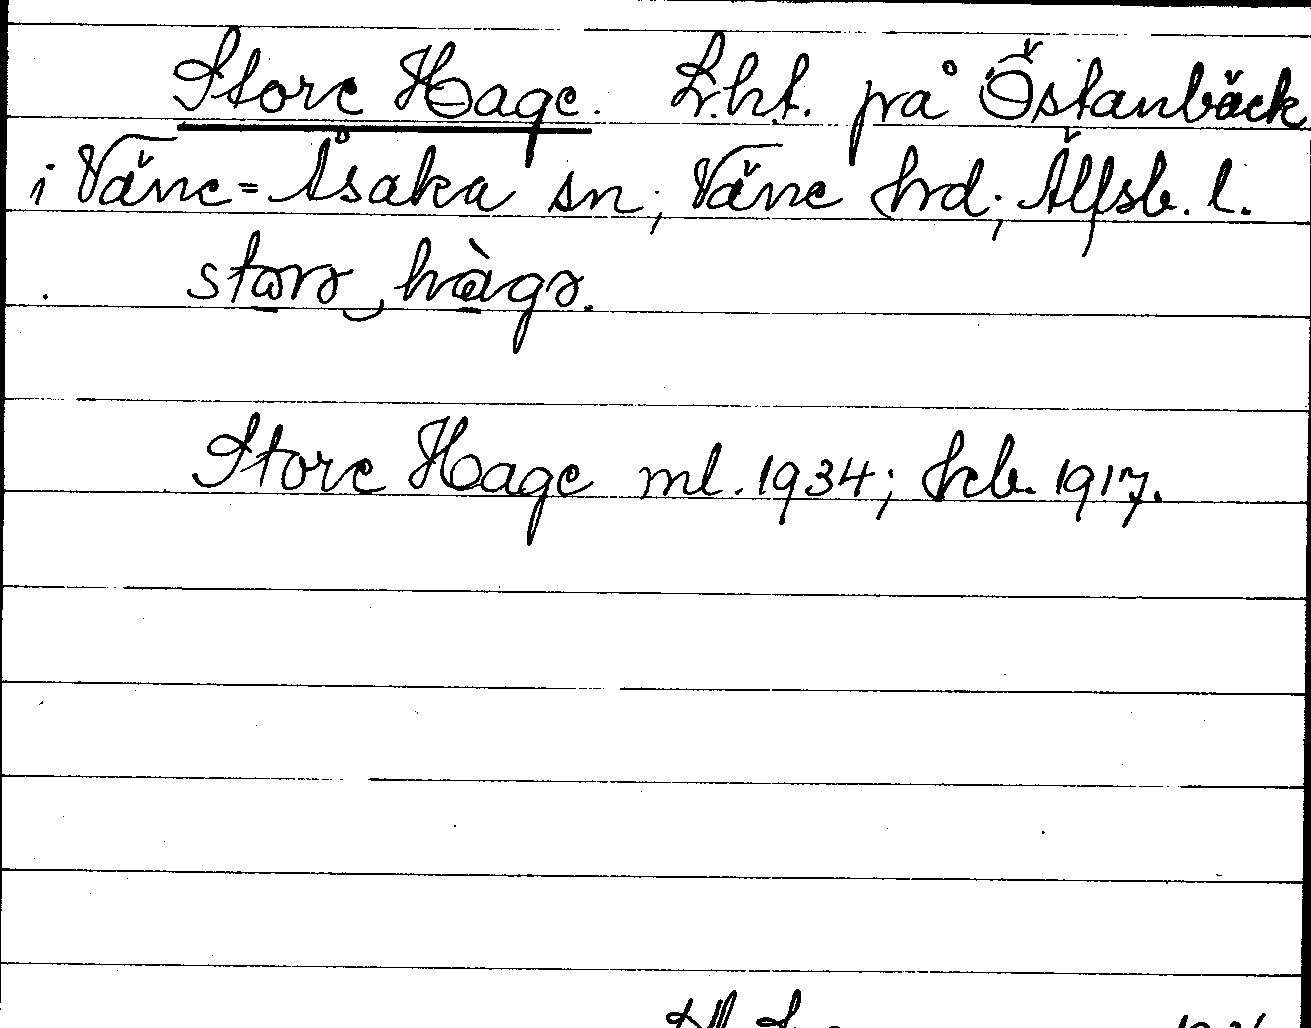 Store Hage. L.ht. på Östanbäck
i Väne-Åsaka sn, Väne hrd, Älfsb. l.
Store Hage ml. 1934; hcb. 1917.